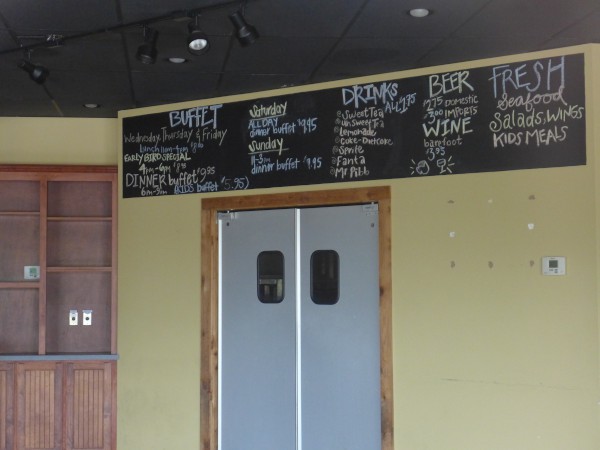 BUFFET
Wednesday, Thursday & Friday
lunch 11am-4pm
EARLY BIRD SPECIAL
4pm-6pm
DINNER buffet $9.95
(KIDS buffet $5.95)
Saturday
ALL DAY
dinner buffet $9.95
Sunday
11-3pm
dinner buffet $9.95
DRINKS
ALL $1.95
Sweet Tea
unSweet Tea
Lemonade
Coke-Diet Coke
Sprite
Fanta
Mr Pibb
BEER
2.75 DOMESTIC
3.00 IMPORTS
WINE
barefoot
$3.95
FRESH
Seafood
Salads, WINGS
KIDS MEALS